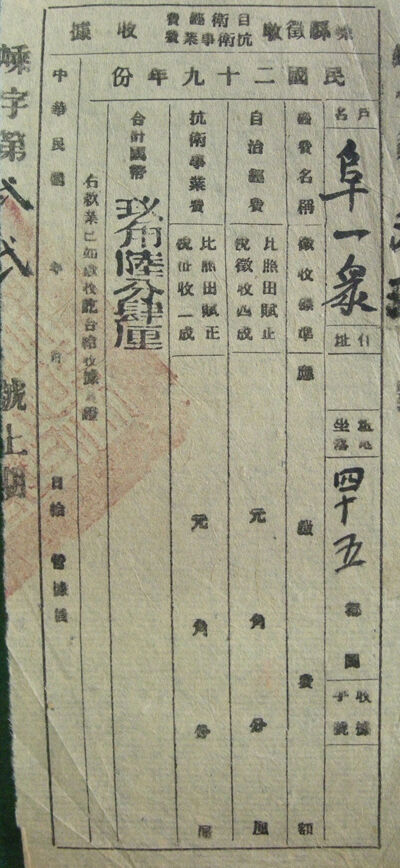 嵊縣徵收自衛經費抗衛事業費收據
民國二十九年份
戶名
阜一眾
住址
畝地坐落
四十五都圖
收據字號
經費名稱 徵收標準 應繳費額
自治經費 比照田賦正稅徵收四成 元角分厘
抗衛事業費 比照田賦正稅征收一成 元角分厘
合計國幣 玖角陸分肆厘
右款業已如數收訖合給收據為證
中華民國 年 月 日給 當據執
嵊字第 貳 貳 號上期